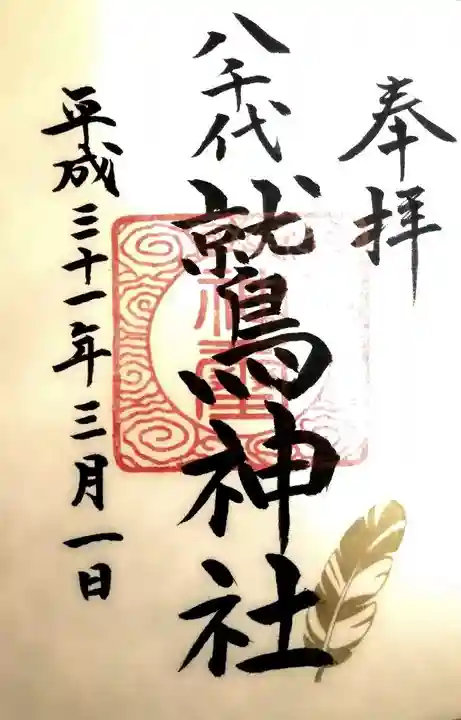 奉拝
八千代
鷲神社
平成三十一年三月一日